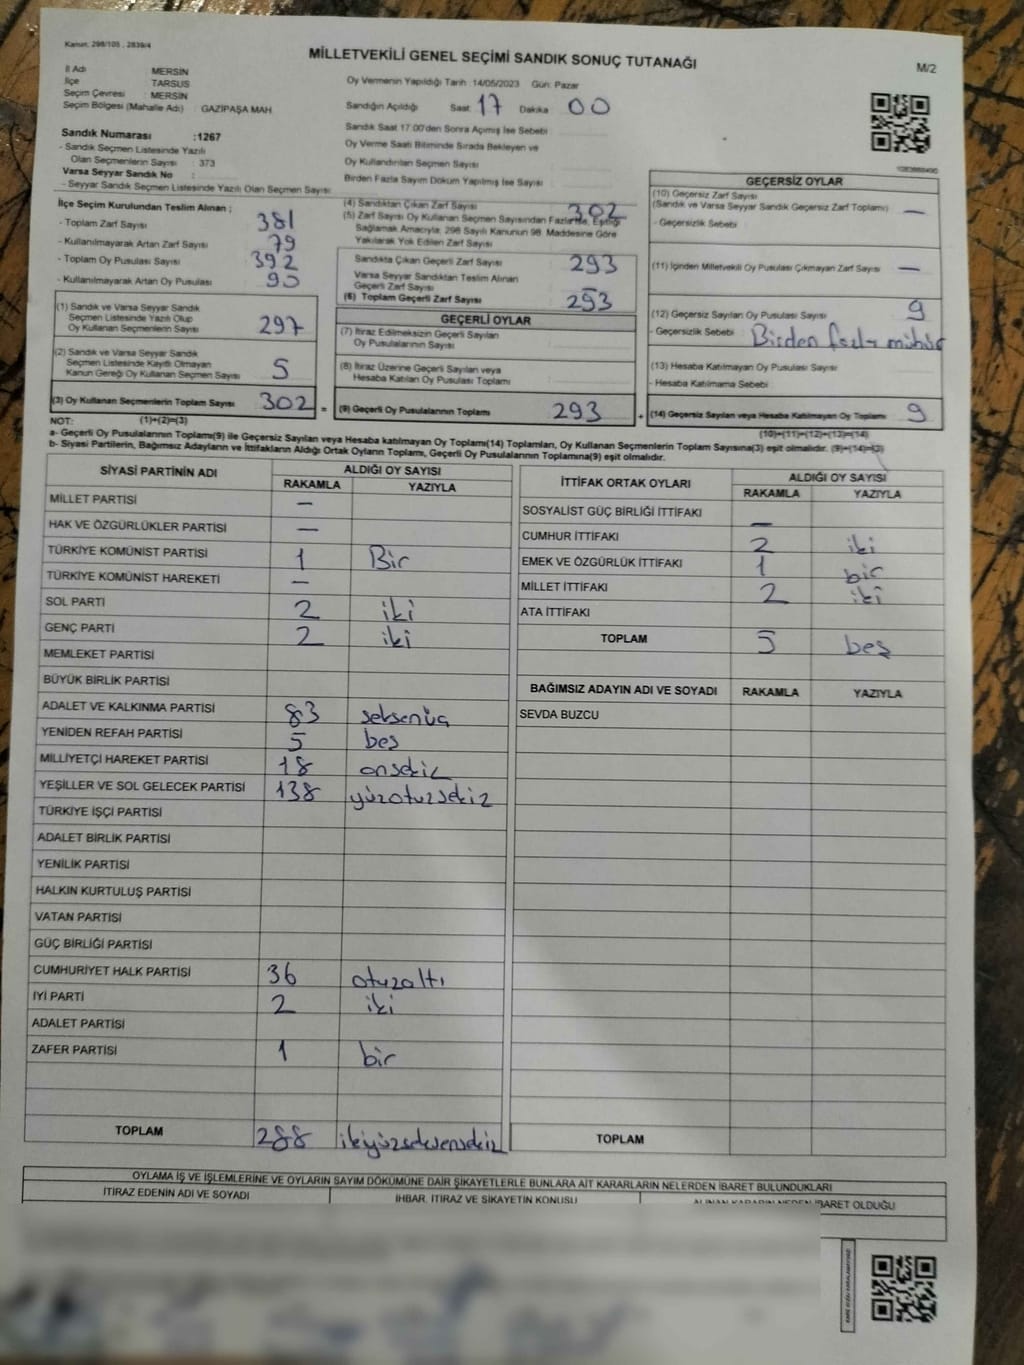 Kanun: 298/105 , 2839/4
MİLLETVEKİLİ GENEL SEÇİMİ SANDIK SONUÇ TUTANAĞI
M/2
İl Adı : MERSİN
İlçe : TARSUS
Seçim Çevresi : MERSİN
Seçim Bölgesi (Mahalle Adı) : GAZİPAŞA MAH
Sandık Numarası :1267
- Sandık Seçmen Listesinde Yazılı
Olan Seçmenlerin Sayısı : 373
Varsa Seyyar Sandık No :
- Seyyar Sandık Seçmen Listesinde Yazılı Olan Seçmen Sayısı :
Oy Vermenin Yapıldığı Tarih :14/05/2023 Gün: Pazar
Sandığın Açıldığı Saat: 17 Dakika 00
Sandık Saat 17:00'den Sonra Açımış İse Sebebi
Oy Verme Saati Bitiminde Sırada Bekleyen ve
Oy Kullandırılan Seçmen Sayısı
Birden Fazla Sayım Döküm Yapılmış İse Sayısı
İlçe Seçim Kurulundan Teslim Alınan ;
- Toplam Zarf Sayısı 381
- Kullanılmayarak Artan Zarf Sayısı 79
- Toplam Oy Pusulası Sayısı 392
- Kullanılmayarak Artan Oy Pusulası 90
(1) Sandık ve Varsa Seyyar Sandık
Seçmen Listesinde Yazılı Olup
Oy Kullanan Seçmenlerin Sayısı 297
(2) Sandık ve Varsa Seyyar Sandık
Seçmen Listesinde Kayıtlı Olmayan
Kanun Gereği Oy Kullanan Seçmen Sayısı 5
(3) Oy Kullanan Seçmenlerin Toplam Sayısı 302 =
(1)+(2)=(3)
(4) Sandıktan Çıkan Zarf Sayısı 302
(5) Zarf Sayısı Oy Kullanan Seçmen Sayısından Fazla İse, Eşitliği
Sağlamak Amacıyla; 298 Sayılı Kanunun 98. Maddesine Göre
Yakılarak Yok Edilen Zarf Sayısı
Sandıkta Çıkan Geçerli Zarf Sayısı 293
Varsa Seyyar Sandıktan Teslim Alınan
Geçerli Zarf Sayısı
(6) Toplam Geçerli Zarf Sayısı 293
GEÇERLİ OYLAR
(7) İtiraz Edilmeksizin Geçerli Sayılan
Oy Pusulalarının Sayısı
(8) İtiraz Üzerine Geçerli Sayılan veya
Hesaba Katılan Oy Pusulası Toplamı
(9) Geçerli Oy Pusulalarının Toplamı 293 +
GEÇERSİZ OYLAR
(10) Geçersiz Zarf Sayısı
(Sandık ve Varsa Seyyar Sandık Geçersiz Zarf Toplamı) —
- Geçersizlik Sebebi
(11) İçinden Milletvekili Oy Pusulası Çıkmayan Zarf Sayısı —
(12) Geçersiz Sayılan Oy Pusulası Sayısı 9
- Geçersizlik Sebebi Birden fazla mühür
(13) Hesaba Katılmayan Oy Pusulası Sayısı
- Hesaba Katılmama Sebebi
(14) Geçersiz Sayılan veya Hesaba Katılmayan Oy Toplamı 9
(10)+(11)+(12)+(13)=(14)
NOT:
a- Geçerli Oy Pusulalarının Toplamı(9) ile Geçersiz Sayılan veya Hesaba katılmayan Oy Toplamı(14) Toplamları, Oy Kullanan Seçmenlerin Toplam Sayısına(3) eşit olmalıdır. (9)+(14)=(3)
b- Siyasi Partilerin, Bağımsız Adayların ve İttifakların Aldığı Ortak Oyların Toplamı, Geçerli Oy Pusulalarının Toplamına(9) eşit olmalıdır.
SİYASİ PARTİNİN ADI ALDIĞI OY SAYISI
RAKAMLA YAZIYLA
MİLLET PARTİSİ —
HAK VE ÖZGÜRLÜKLER PARTİSİ —
TÜRKİYE KOMÜNİST PARTİSİ 1 Bir
TÜRKİYE KOMÜNİST HAREKETİ —
SOL PARTİ 2 iki
GENÇ PARTİ 2 iki
MEMLEKET PARTİSİ
BÜYÜK BİRLİK PARTİSİ
ADALET VE KALKINMA PARTİSİ 83 seksenüç
YENİDEN REFAH PARTİSİ 5 beş
MİLLİYETÇİ HAREKET PARTİSİ 18 onsekiz
YEŞİLLER VE SOL GELECEK PARTİSİ 138 yüzotuzsekiz
TÜRKİYE İŞÇİ PARTİSİ
ADALET BİRLİK PARTİSİ
YENİLİK PARTİSİ
HALKIN KURTULUŞ PARTİSİ
VATAN PARTİSİ
GÜÇ BİRLİĞİ PARTİSİ
CUMHURİYET HALK PARTİSİ 36 otuzaltı
İYİ PARTİ 2 iki
ADALET PARTİSİ
ZAFER PARTİSİ 1 bir
TOPLAM 288 ikiyüzseksensekiz
İTTİFAK ORTAK OYLARI ALDIĞI OY SAYISI
RAKAMLA YAZIYLA
SOSYALİST GÜÇ BİRLİĞİ İTTİFAKI —
CUMHUR İTTİFAKI 2 iki
EMEK VE ÖZGÜRLÜK İTTİFAKI 1 bir
MİLLET İTTİFAKI 2 iki
ATA İTTİFAKI
TOPLAM 5 beş
BAĞIMSIZ ADAYIN ADI VE SOYADI RAKAMLA YAZIYLA
SEVDA BUZCU
TOPLAM
OYLAMA İŞ VE İŞLEMLERİNE VE OYLARIN SAYIM DÖKÜMÜNE DAİR ŞİKAYETLERLE BUNLARA AİT KARARLARIN NELERDEN İBARET BULUNDUKLARI
İTİRAZ EDENİN ADI VE SOYADI İHBAR, İTİRAZ VE ŞİKAYETİN KONUSU ALINAN KARARIN NEDEN İBARET OLDUĞU